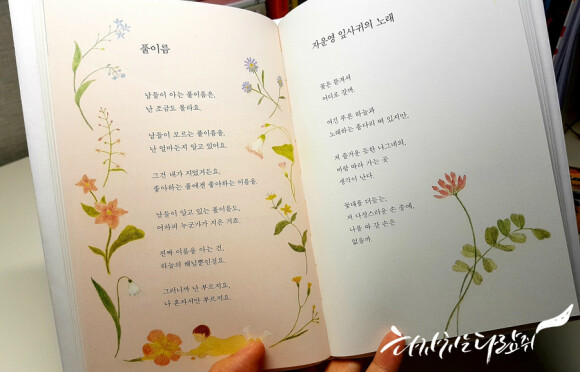 풀이름
남들이 아는 풀이름은,
난 조금도 몰라요.
남들이 모르는 풀이름을,
난 얼마든지 알고 있어요.
그건 내가 지었거든요,
좋아하는 풀에겐 좋아하는 이름을.
남들이 알고 있는 풀이름도,
어차피 누군가가 지은 거죠.
진짜 이름을 아는 건,
하늘의 해님뿐인걸요.
그러니까 난 부르지요,
나 혼자서만 부르지요.
자운영 잎사귀의 노래
꽃은 뜯겨서
어디로 갈까.
여긴 푸른 하늘과
노래하는 종다리 떼 있지만,
저 즐거운 듯한 나그네의,
바람 따라 가는 곳
생각이 난다.
꽃대를 더듬는,
저 다정스러운 손 중에,
나를 따 갈 손은
없을까.